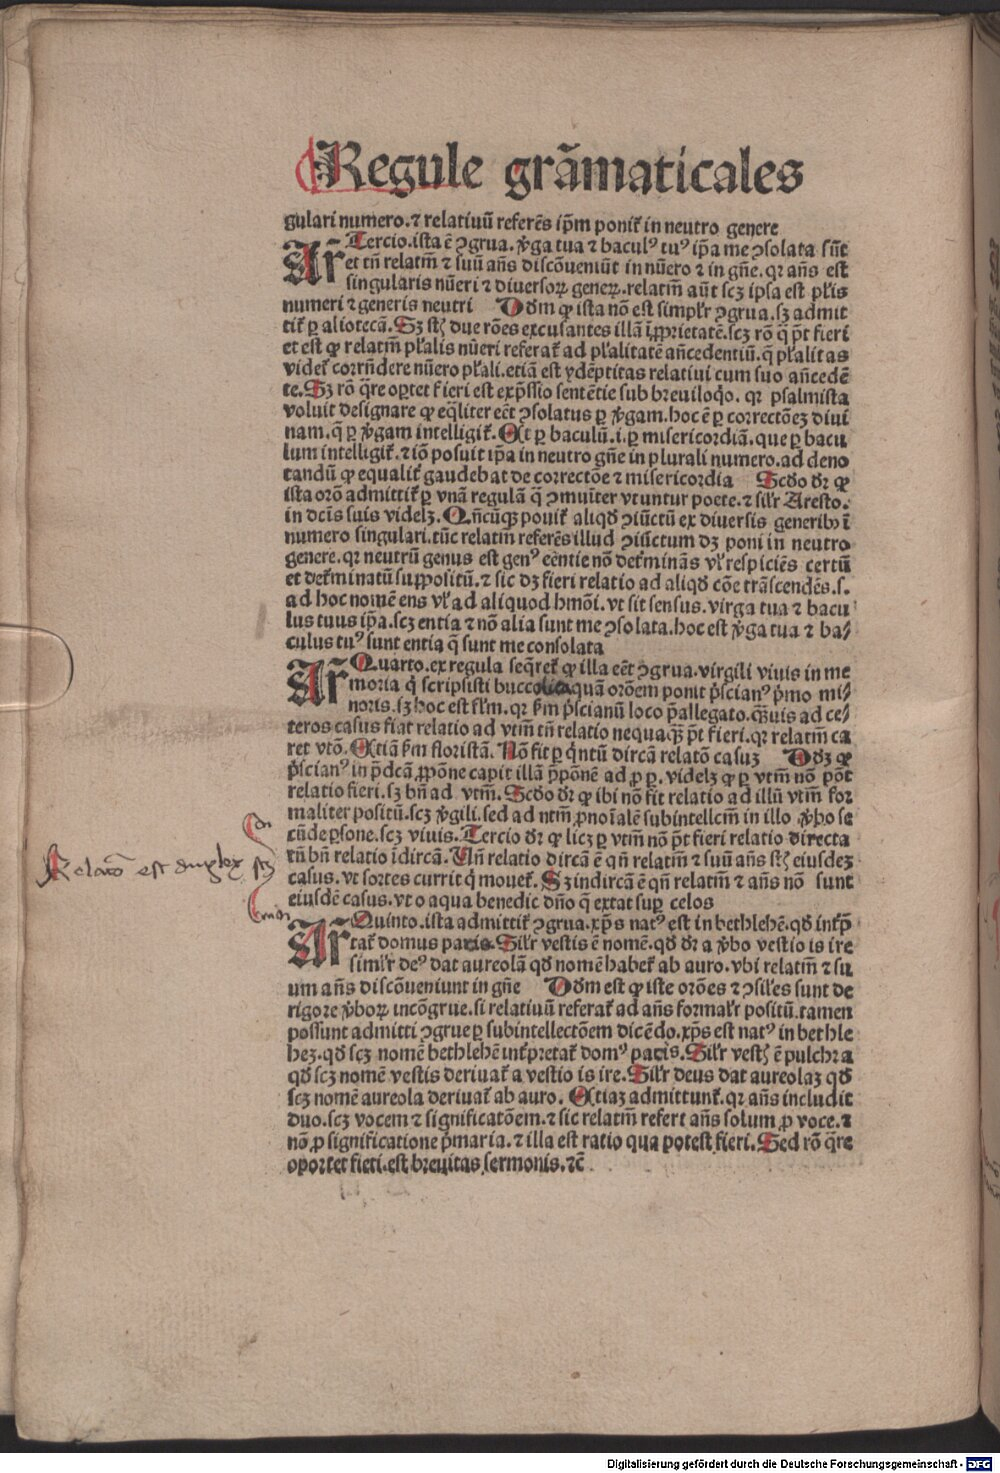 Regule grãmaticales
gulari numero.⁊ relatiuũ referẽs ip̃m ponit̃ in neutro genere
Ar̃ Tercio.ista ẽ ꝯgrua.v̓ga tua ⁊ baculꝰ tuꝰ ip̃a me ꝯsolata sũt
et tñ relatm̃ ⁊ suũ añs discõueniũt in nũero ⁊ in gñe.qꝛ añs est
singularis nũeri ⁊ diuersoꝝ geneꝝ.relatm̃ aũt scꝫ ipsa est pl̃is
numeri ⁊ generis neutri Dd̃m ꝙ ista nõ est simpl̃r ꝯgrua.sꝫ admit
tit̃ ꝑ aliotecã.Sꝫ st̃ due rões excusantes illã ĩꝓprietatẽ.scꝫ rõ q̃ p̃t fieri
et est ꝙ relatm̃ pl̃alis nũeri referat̃ ad pl̃alitatẽ añcedentiũ.q̃ pl̃alitas
videt̃ corrñdere nũero pl̃ali.etiã est ydẽptitas relatiui cum suo añcedẽ
te.Sꝫ rõ q̃re oꝑtet fieri est exp̃ssio sentẽtie sub breuiloq̊o. qꝛ psalmista
voluit designare ꝙ eq̃liter eẽt ꝯsolatus ꝑ v̓gam.hoc ẽ ꝑ correctõeꝫ diui
nam.q̃ ꝑ v̓gam intelligit̃. Et ꝑ baculũ.i.ꝑ misericordiã.que ꝑ bacu
lum intelligit̃.⁊ iõ posuit ip̃a in neutro gñe in plurali numero.ad deno
tandũ ꝙ equalit̃ gaudebat de correctõe ⁊ misericordia Scd̃o dr̃ ꝙ
ista orõ admittit̃ ꝑ vnã regulã q̃ ꝯmuĩter vtuntur poete.⁊ sil̃r Aresto.
in dc̃is suis videlꝫ.Qñcũqꝫ ponit̃ aliqd̃ ꝯiũctũ ex diuersis generibꝰ ĩ
numero singulari.tũc relatm̃ referẽs illud ꝯiũctum dꝫ poni in neutro
genere.qꝛ neutrũ genus est genꝰ eẽntie nõ det̃minãs vl̃ respiciẽs certũ
et det̃minatũ suppositũ.⁊ sic dꝫ fieri relatio ad aliqd̃ cõe trãscendẽs.s.
ad hoc nomẽ ens vl̃ ad aliquod hmõi.vt sit sensus.virga tua ⁊ bacu
lus tuus ip̃a.scꝫ entia ⁊ nõ alia sunt me ꝯsolata.hoc est v̓ga tua ⁊ ba⸗
culus tuꝰ sunt entia q̃ sunt me consolata
Ar̃ Quarto.ex regula seq̃ret̃ ꝙ illa eẽt ꝯgrua.virgili viuis in me
moria q̇ scripsisti buccolica quã orõem ponit p̃scianꝰ p̃mo mi⸗
noris.sꝫ hoc est fl̃m.qꝛ ẜm p̃scianũ loco p̃allegato.q̃uis ad ce⸗
teros casus fiat relatio ad vtm̃ tñ relatio nequaqꝫ p̃t fieri.qꝛ relatm̃ ca
ret vtõ. Etiã ẜm floristã. Nõ fit ꝑ q̃ntũ dircã relatõ casuꝫ Ddꝫ ꝙ
p̃scianꝰ in p̃dcã ꝓpõne capit illã p̃põnẽ ad ꝓ ꝑ. videlꝫ ꝙ ꝑ vtm̃ nõ põt
relatio fieri.sꝫ bñ ad vtm̃. Scd̃o dr̃ ꝙ ibi nõ fit relatio ad illũ vtm̃ for
maliter positũ.scꝫ v̓gili.sed ad ntm̃ ꝓnoĩalẽ subintellcm̃ in illo v̓bo se
cũde ꝑsone.scꝫ viuis. Tercio dr̃ ꝙ licꝫ ꝑ vtm̃ nõ p̃t fieri relatio directa
tñ bñ relatio ĩdircã. Vñ relatio dircã ẽ qñ relatm̃ ⁊ suũ añs st̃ eiusdeꝫ
casus. vt sortes currit q̇ mouet̃. Sꝫ indircã ẽ qñ relatm̃ ⁊ añs nõ sunt
eiusdẽ casus.vt o aqua benedic dño q̃ extat suꝑ celos
Ar̃ Quinto.ista admittit̃ ꝯgrua.xp̃s natꝰ est in bethlehẽ.qd̃ int̃p̃
tat̃ domus pacis. Sil̃r vestis ẽ nomẽ.qd̃ dr̃ a v̓bo vestio is ire
simil̃r deꝰ dat aureolã qd̃ nomẽ habet̃ ab auro. vbi relatm̃ ⁊ su
um añs discõueniunt in gñe Dd̃m est ꝙ iste orões ⁊ ꝯsil̃es sunt de
rigore v̓boꝝ incõgrue.si relatiuũ referat̃ ad añs formal̃r positũ.tamen
possunt admitti ꝯgrue ꝑ subintellectõem dicẽdo.xp̃s est natꝰ in bethle
heꝫ.qd̃ scꝫ nomẽ bethlehẽ int̃pretat̃ domꝰ pacis. Sil̃r vest̃ ẽ pulchra
qd̃ scꝫ nomẽ vestis deriuat̃ a vestio is ire. Sil̃r deus dat aureolaꝫ qd̃
scꝫ nomẽ aureola deriuat̃ ab auro. Etiaꝫ admittunt̃. qꝛ añs includit
duo.scꝫ vocem ⁊ significatõem.⁊ sic relatm̃ refert añs solum ꝓ voce.⁊
nõ ꝓ significatione p̃maria.⁊ illa est ratio qua potest fieri. Sed rõ q̃re
oportet fieri.est breuitas sermonis.⁊c̃
Relatõ est duplex
Digitalisierung gefördert durch die Deutsche Forschungsgemeinschaft - DFG